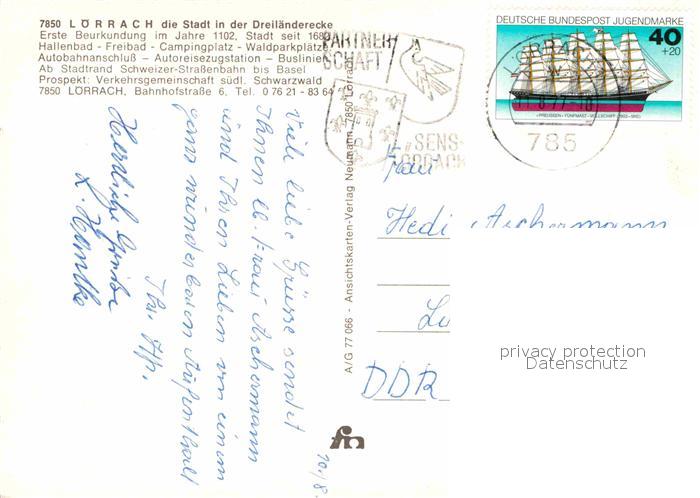 7850 LÖRRACH die Stadt in der Dreiländerecke
Erste Beurkundung im Jahre 1102, Stadt seit 1682
Hallenbad - Freibad - Campingplatz - Waldparkplätze
Autobahnanschluß - Autoreisezugstation - Buslinien
Ab Stadtrand Schweizer-Straßenbahn bis Basel
Prospekt: Verkehrsgemeinschaft südl. Schwarzwald
7850 LÖRRACH, Bahnhofstraße 6, Tel. 0 76 21 - 83 64
PARTNER
SCHAFT
SENS-
LÖRRACH
DEUTSCHE BUNDESPOST JUGENDMARKE
40
+20
»PREUSSEN« FÜNFMAST-VOLLSCHIFF (1902-1910)
785
10./8.
Viele liebe Grüsse sendet
Ihnen lb. Frau Aschermann
und Ihren Lieben von einem
ganz wunderbaren Aufenthalt
Ihr.
Herzliche Grüße
A/G 77 066 - Ansichtskarten-Verlag Neumann, 7850 Lörrach
Frau
Hedi Aschermann
Lu
DDR
privacy protection
Datenschutz